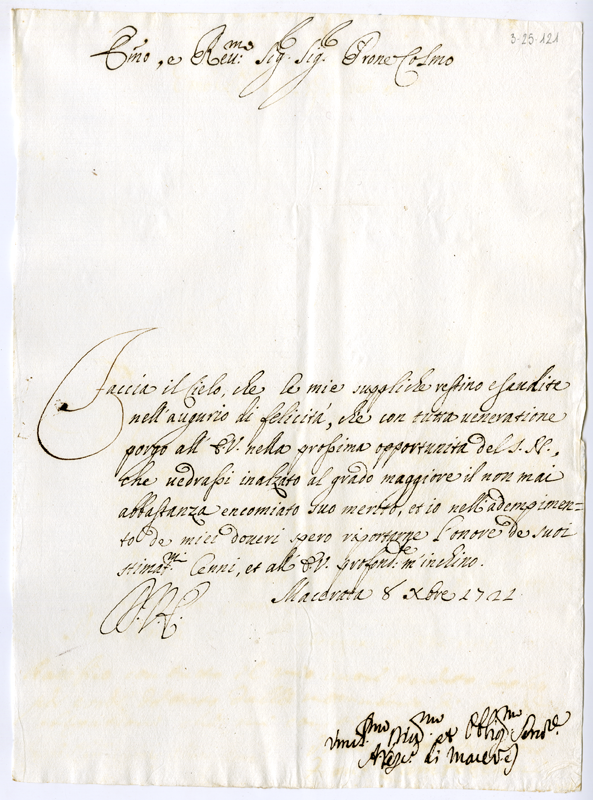 3-25-121
Emo, e Reu:mo Sig.r Sig.r Prone Colmo
Faccia il Cielo, che le mie suppliche restino esaudite
nell'augurio di felicità, che con tutta veneratione
porgo all'E.V. nella prossima opportunità del S. N.,
che vedrassi inalzato al grado maggiore il non mai
abbastanza encomiato suo merito, et io nell'adempimen=
to de miei doueri spero riportarne l'onore de suoi
stimat.mi Cenni, et all'E.V. profond.te m'inchino.
Macerata 8 Xbre 1721
Vmil.mo Diu.mo et Obblig.mo Serure